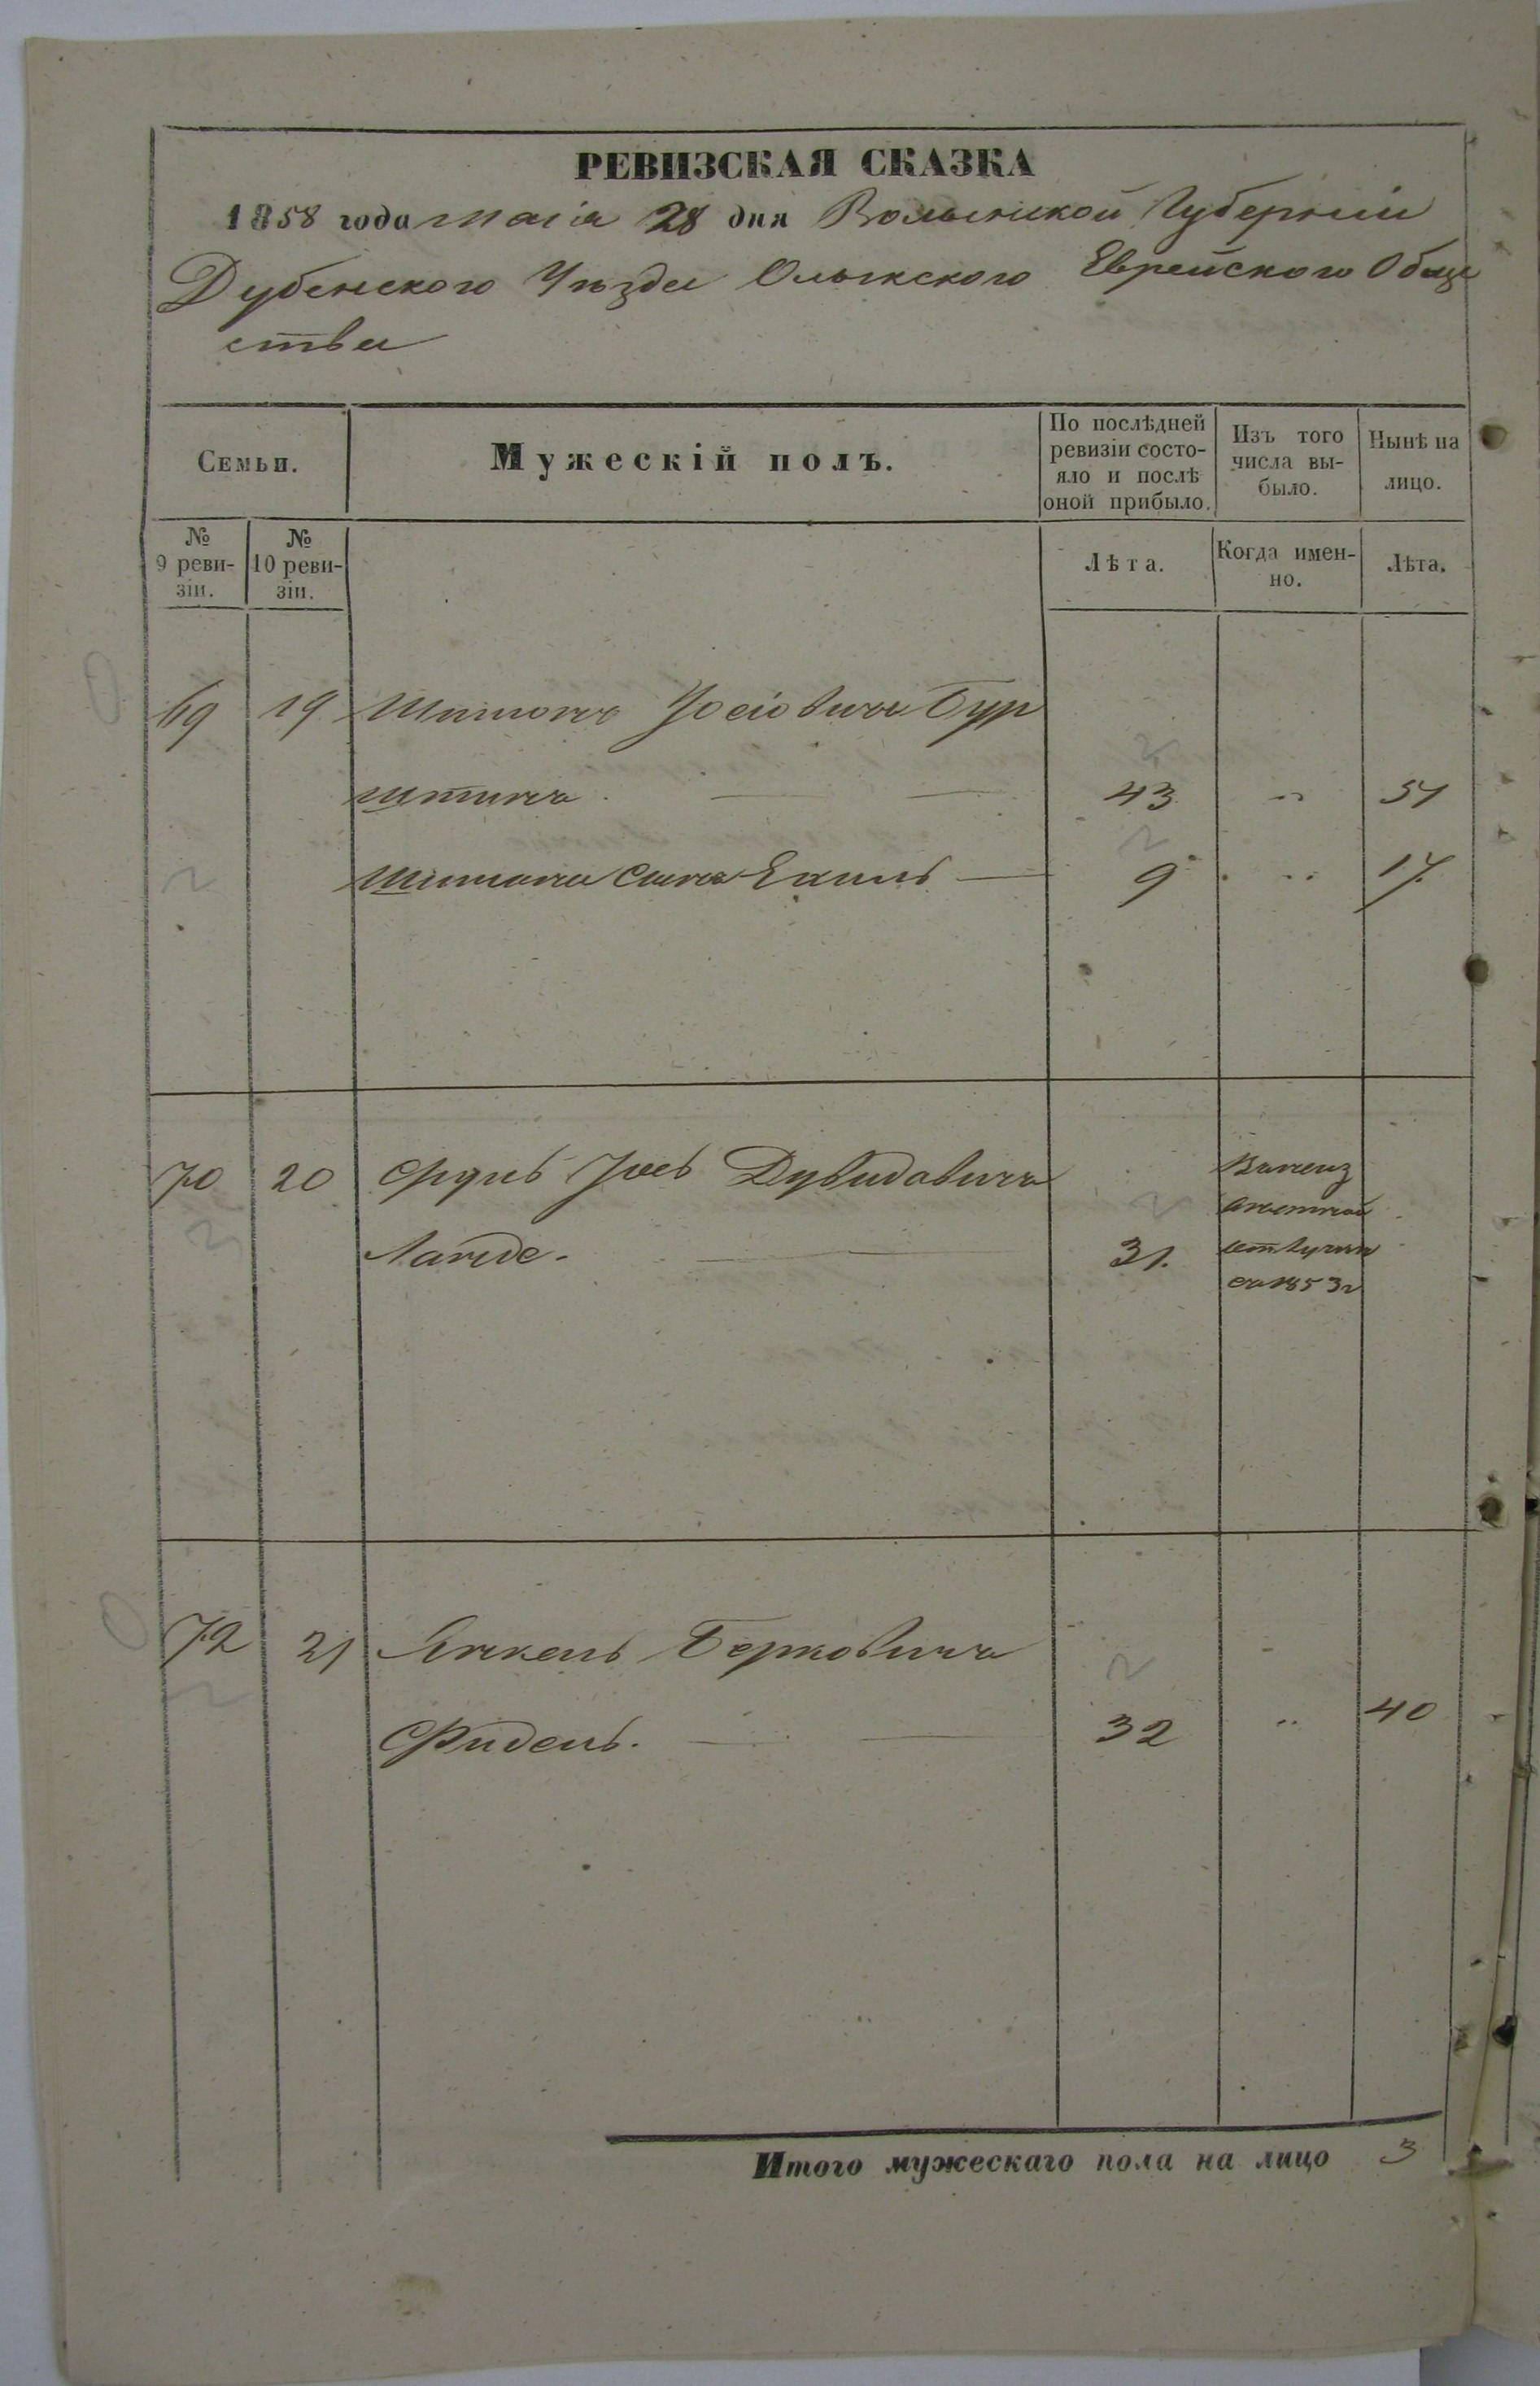 РЕВИЗСКАЯ СКАЗКА
1858 года маія 28 дня Волынской Губерніи
Дубенского Уѣзда Олыкского Еврейского Обще
ства
Семьи.
Мужескій полъ.
По послѣдней ревизіи состо-
яло и послѣ оной прибыло.
Изъ того числа вы-
было.
Нынѣ на лицо.
№ 9 реви-
зіи.
№ 10 реви-
зіи.
Лѣта.
Когда имен-
но.
Лѣта.
69 19 Шимонъ Іосіовичъ Бур
штинъ 43 " 51
Шимона сынъ Ехиль 9 " 17
70 20 Іось Дувидовичъ
Ланде. 31.
1853г
72 21 Янкель Берковичъ
Фидель. 32 " 40
Итого мужескаго пола на лицо 3